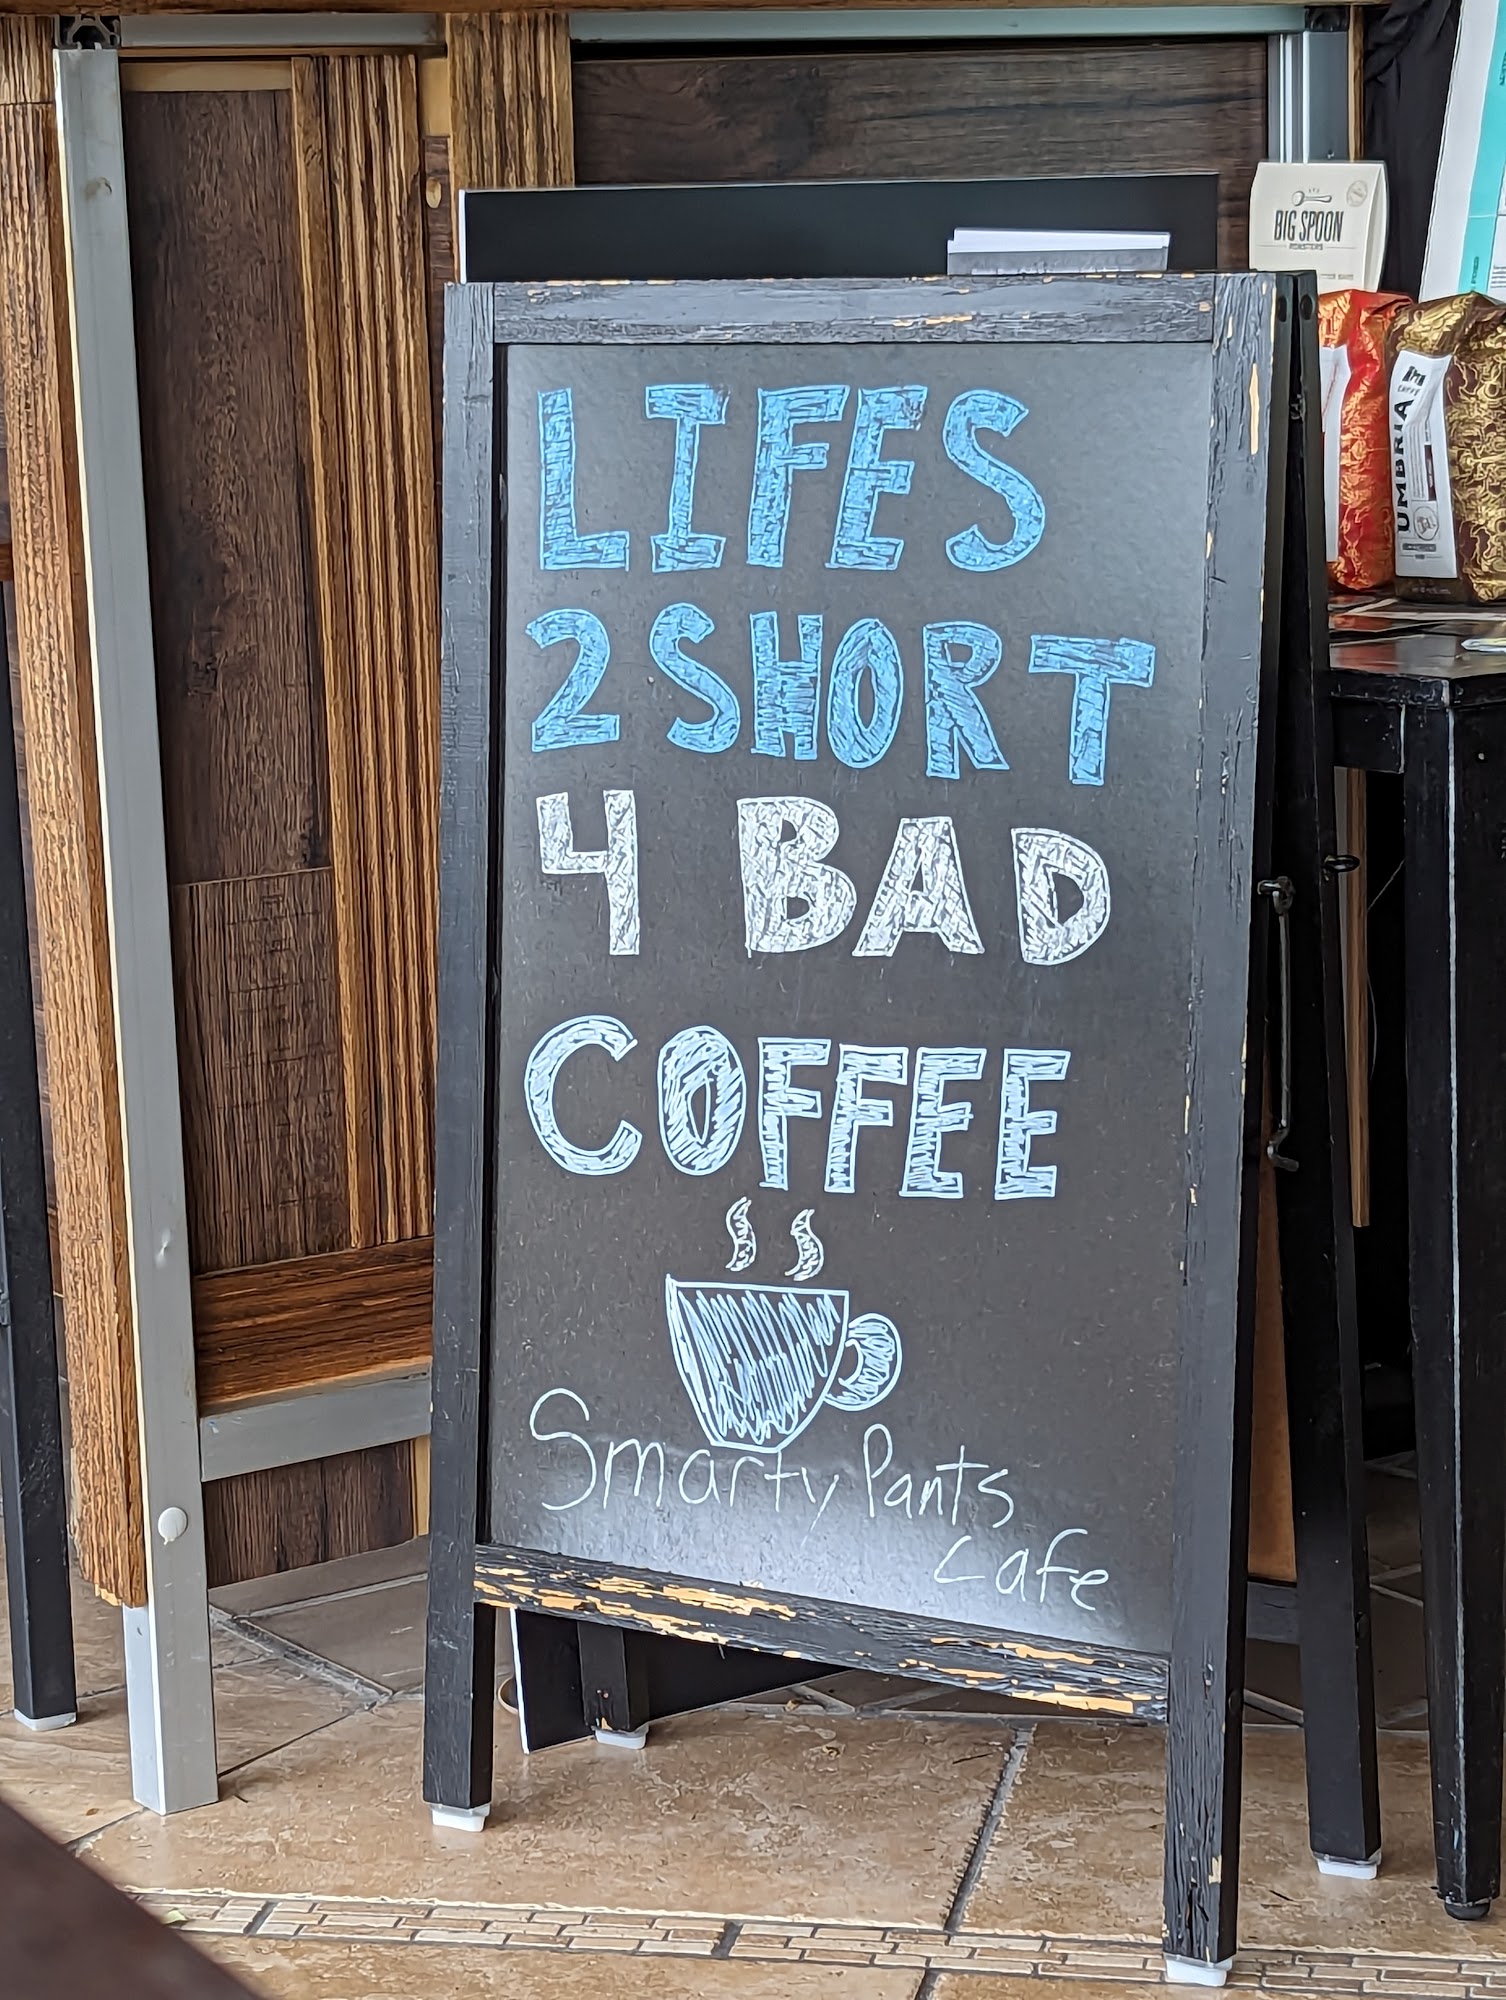 LIFES
2 SHORT
4 BAD
COFFEE
Smarty Pants
Cafe
BIG SPOON
ROASTERS
UMBRIA